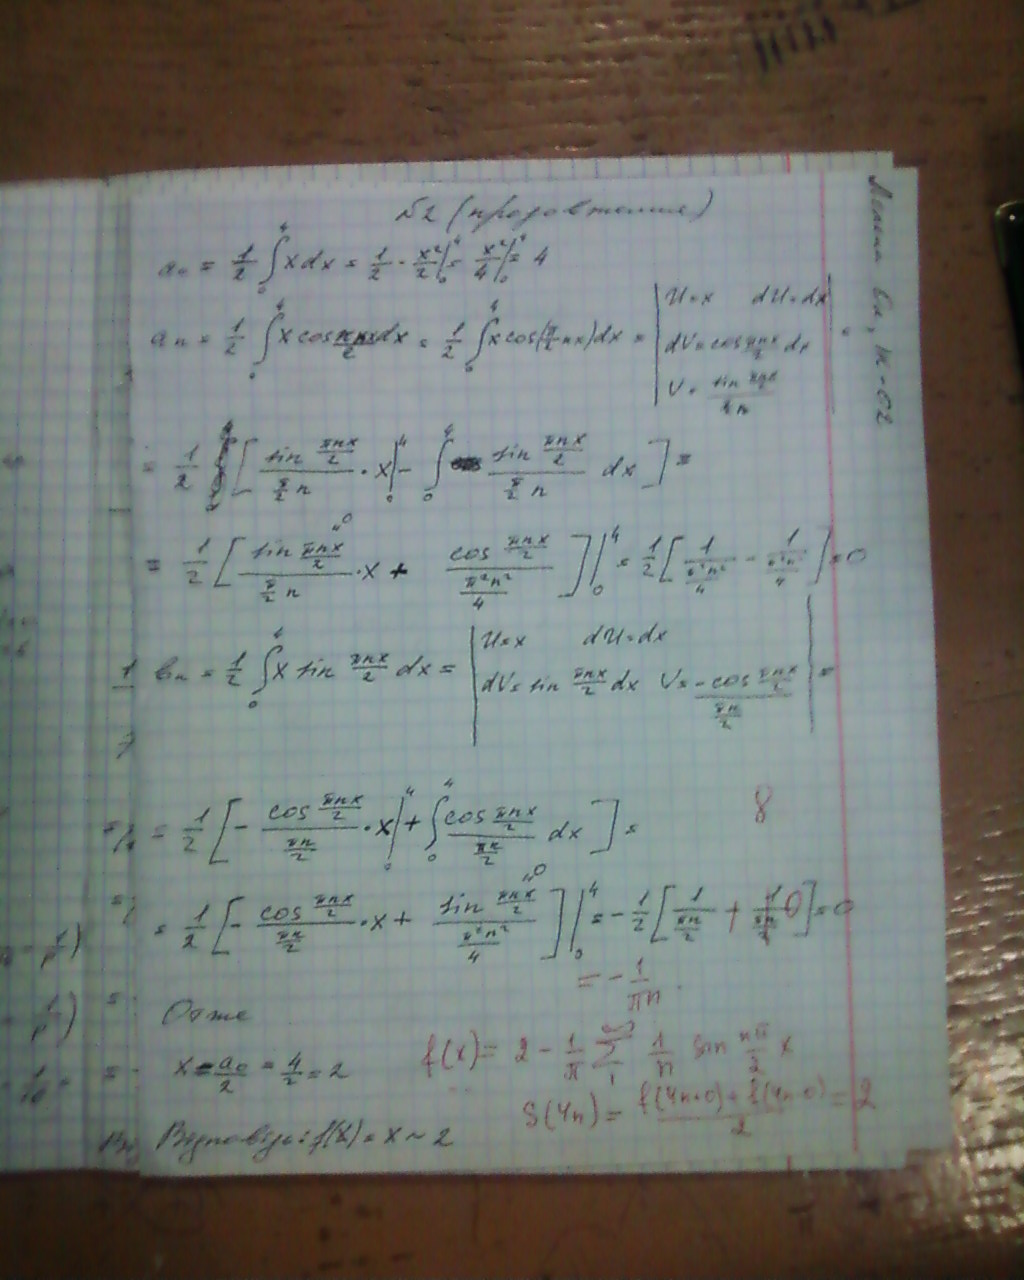 №2 (продовження)
a₀ = 1/2 ∫₀⁴ x dx = 1/2 · x²/2 |₀⁴ = x²/4 |₀⁴ = 4
aₙ = 1/2 ∫₀⁴ x cos πnx/2 dx = 1/2 ∫₀⁴ x cos(π/2 nx) dx = | U = x dU = dx
dV = cos πnx/2 dx
V = sin πnx/2 / π/2 n | =
= 1/2 [ sin πnx/2 / π/2 n · x |₀⁴ - ∫₀⁴ sin πnx/2 / π/2 n dx ] =
= 1/2 [ sin πnx/2 / π/2 n · x + cos πnx/2 / π²n²/4 ] |₀⁴ = 1/2 [ 1 / π²n²/4 - 1 / π²n²/4 ] = 0
bₙ = 1/2 ∫₀⁴ x sin πnx/2 dx = | U = x dU = dx
dV = sin πnx/2 dx V = -cos πnx/2 / πn/2 | =
= 1/2 [ - cos πnx/2 / πn/2 · x |₀⁴ + ∫₀⁴ cos πnx/2 / πn/2 dx ] =
8
= 1/2 [ - cos πnx/2 / πn/2 · x + sin πnx/2 / π²n²/4 ] |₀⁴ = - 1/2 [ 1 / πn/2 + 0 ] = 0
= - 1/πn
Отже
x = a₀/2 = 4/2 = 2
f(x) = 2 - 1/π ∑₁^∞ 1/n sin nπ/2 x
S(4n) = f(4n+0) + f(4n-0) / 2 = 2
Відповідь: f(x) = x ~ 2